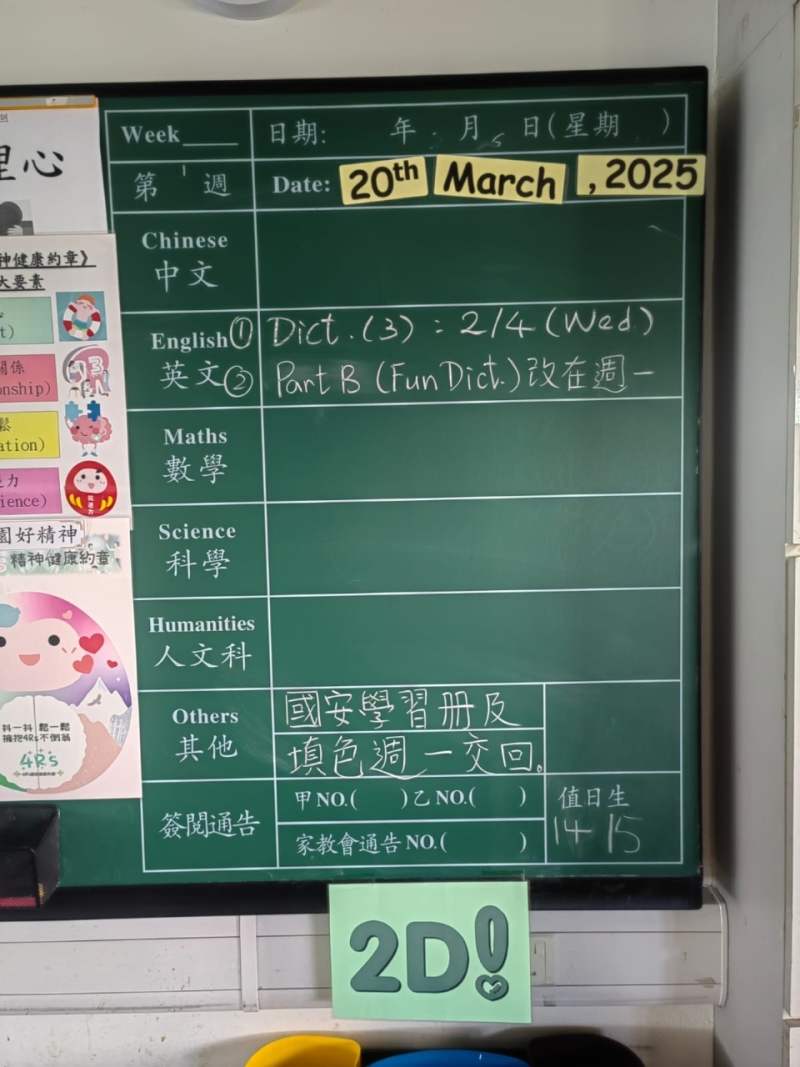 理心
神健康約章》
大要素
關係
onship)
鬆
ation)
力
ience)
園好精神
精神健康約章
抖一抖 鬆一鬆
擁抱4Rs不倒翁
4Rs
Week 日期: 年 月 日(星期 )
第 週 Date: 20th March , 2025
Chinese
中文
English① Dict. (3) : 2/4 (Wed.)
英文② Part B (Fun Dict.) 改在週一
Maths
數學
Science
科學
Humanities
人文科
Others
其他
國安學習册及
填色週一交回。
簽閱通告
甲NO.( )乙NO.( )
家教會通告NO.( )
值日生
14 15
2D!